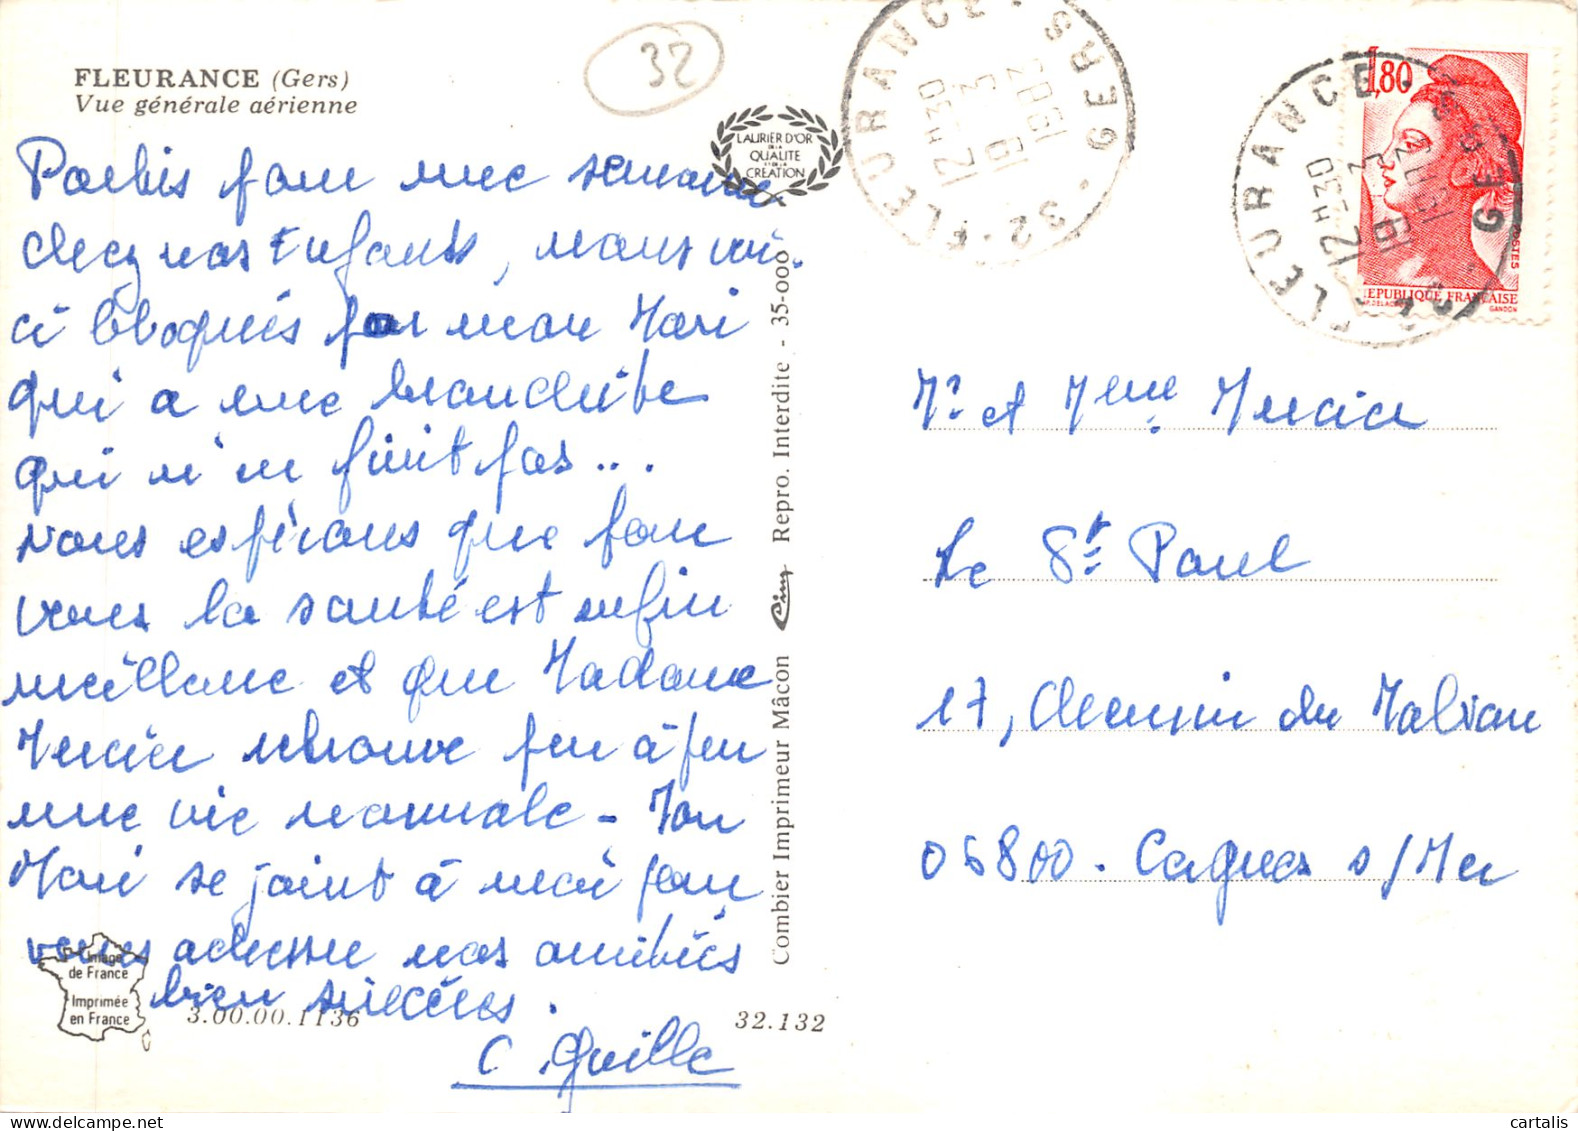 FLEURANCE (Gers)
Vue générale aérienne
32
LAURIER D'OR
DE LA
QUALITE
ET DE LA
CREATION
Partis pour une semaine
chez nos Enfants, nous voi-
ci bloqués par mon Mari
qui a une bronchite
qui n'en finit pas...
Nous espérons que pour
vous la santé est enfin
meilleure et que Madame
Mercier retrouve peu à peu
une vie normale - Mon
Mari se joint à moi pour
vous adresser nos amitiés
bien sincères.
C Guille
Image
de France
Imprimée
en France
3.00.00.1136
32.132
Combier Imprimeur Mâcon Cim Repro. Interdite - 35-000
32-FLEURANCE·GERS·
12H30
19-3
1982
32-FLEURANCE·GERS·
12H30
19-3
1982
1,80
POSTES
REPUBLIQUE FRANÇAISE
GANDON
Mr et Mme Mercier
Le St Paul
17, Chemin du Malvan
06800. Cagnes s/Mer
cartalis